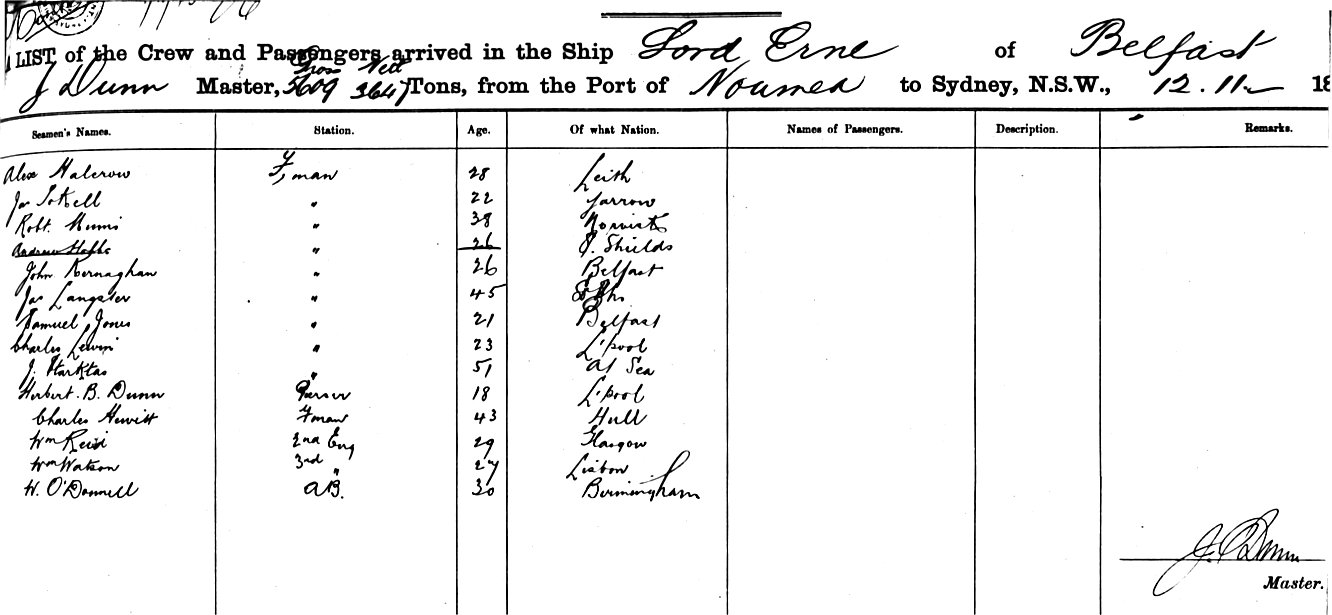 LIST of the Crew and Passengers arrived in the Ship Lord Erne of Belfast
Gross Nett
J Dunn Master, 5609 3647 Tons, from the Port of Noumea to Sydney, N.S.W., 12.11 18
Seamen's Names. Station. Age. Of what Nation. Names of Passengers. Description. Remarks.
Alex Halcrow Fman 28 Leith
Jas " 22 Jarrow
Robt. " 38
Andrew " 26 S. Shields
John Kernaghan " 26 Belfast
Jas Langster " 45
Samuel Jones " 21 Belfast
Charles Lewin " 23 L'pool
J. " 51 At Sea
Herbert. B. Dunn Purser 18 L'pool
Charles Hewitt Fman 43 Hull
Wm Reid 2nd Eng 29 Glasgow
Wm Watson 3rd " 27 Lisbon
W. O'Donnell A.B. 30 Birmingham
J. Dunn
Master.